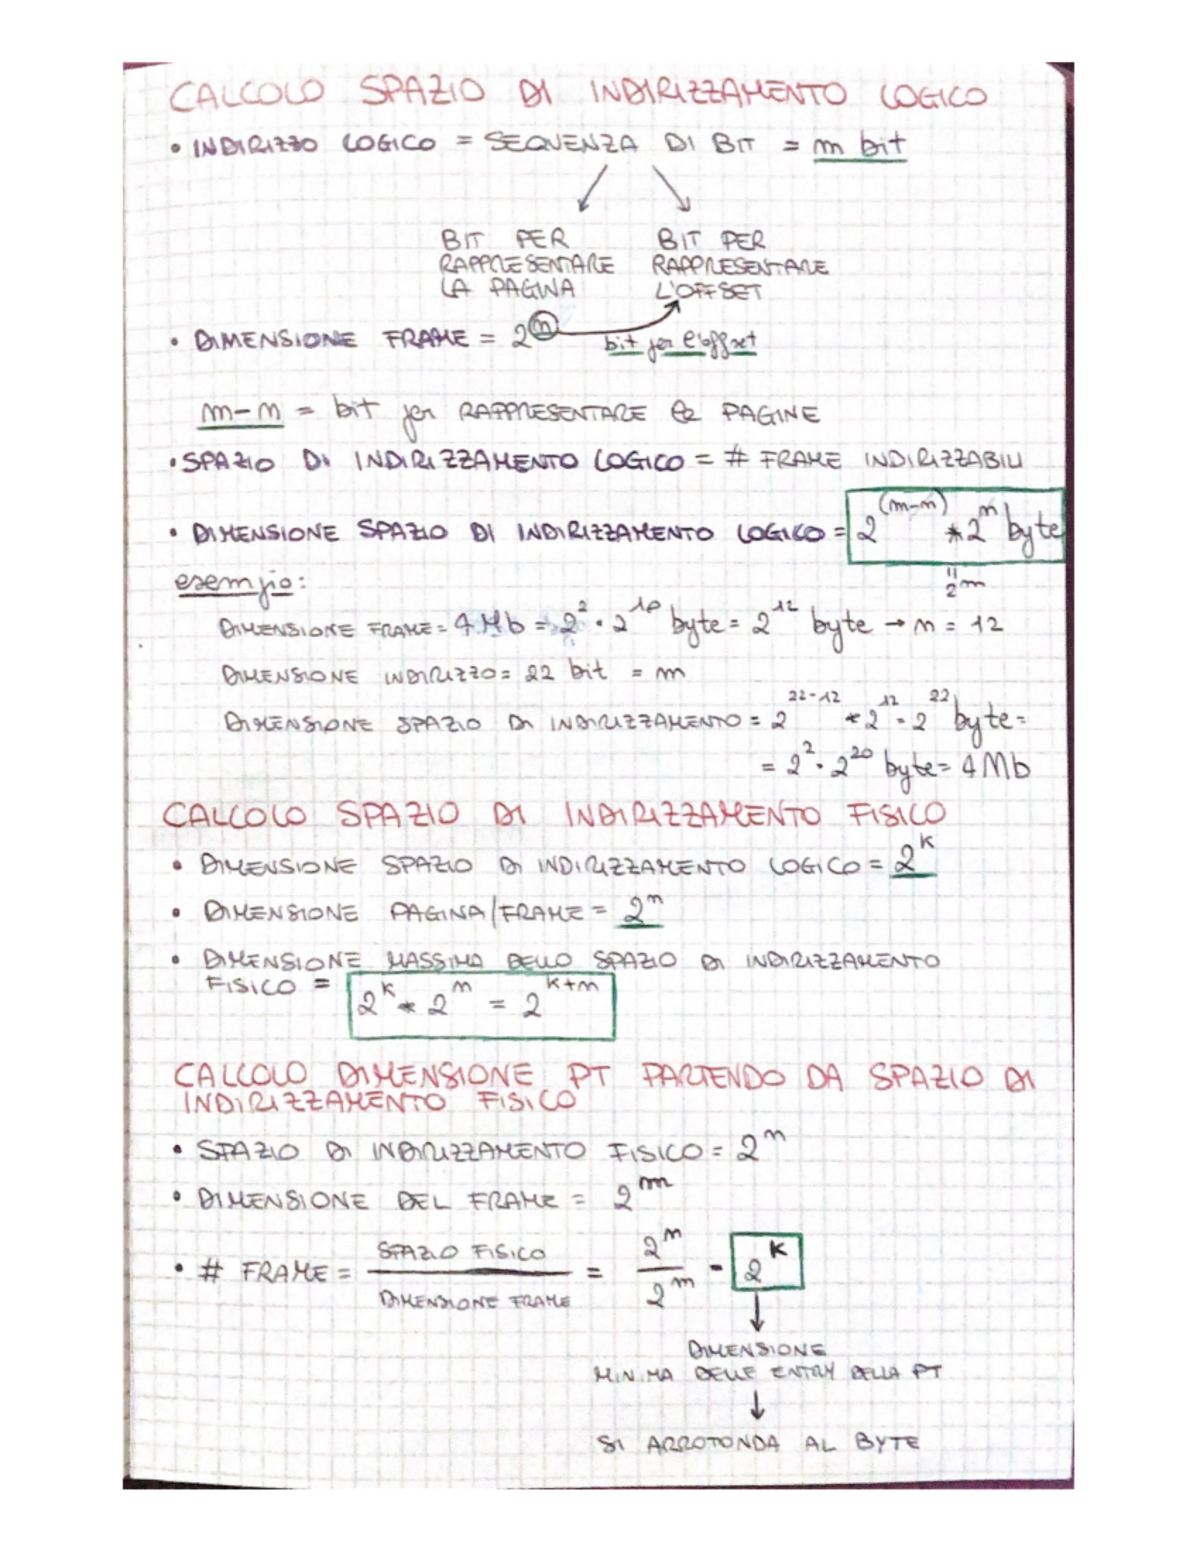 CALCOLO SPAZIO DI INDIRIZZAMENTO LOGICO
• INDIRIZZO LOGICO = SEQUENZA DI BIT = m bit
BIT PER RAPPRESENTARE LA PAGINA
BIT PER RAPPRESENTARE L'OFFSET
• DIMENSIONE FRAME = 2^n bit per l'offset
m-n = bit per RAPPRESENTARE le PAGINE
• SPAZIO DI INDIRIZZAMENTO LOGICO = # FRAME INDIRIZZABILI
• DIMENSIONE SPAZIO DI INDIRIZZAMENTO LOGICO = 2^(m-n) * 2^n byte
= 2^m
esempio:
DIMENSIONE FRAME = 4 Mb = 2^2 · 2^10 byte = 2^12 byte → n = 12
DIMENSIONE INDIRIZZO = 22 bit = m
DIMENSIONE SPAZIO DI INDIRIZZAMENTO = 2^22-12 * 2^12 = 2^22 byte =
= 2^2 · 2^20 byte = 4 Mb
CALCOLO SPAZIO DI INDIRIZZAMENTO FISICO
• DIMENSIONE SPAZIO DI INDIRIZZAMENTO LOGICO = 2^k
• DIMENSIONE PAGINA/FRAME = 2^n
• DIMENSIONE MASSIMA DELLO SPAZIO DI INDIRIZZAMENTO
FISICO = 2^k * 2^n = 2^k+n
CALCOLO DIMENSIONE PT PARTENDO DA SPAZIO DI
INDIRIZZAMENTO FISICO
• SPAZIO DI INDIRIZZAMENTO FISICO = 2^n
• DIMENSIONE DEL FRAME = 2^m
• # FRAME = SPAZIO FISICO / DIMENSIONE FRAME = 2^n / 2^m = 2^k
DIMENSIONE
MINIMA DELLE ENTRY DELLA PT
SI ARROTONDA AL BYTE